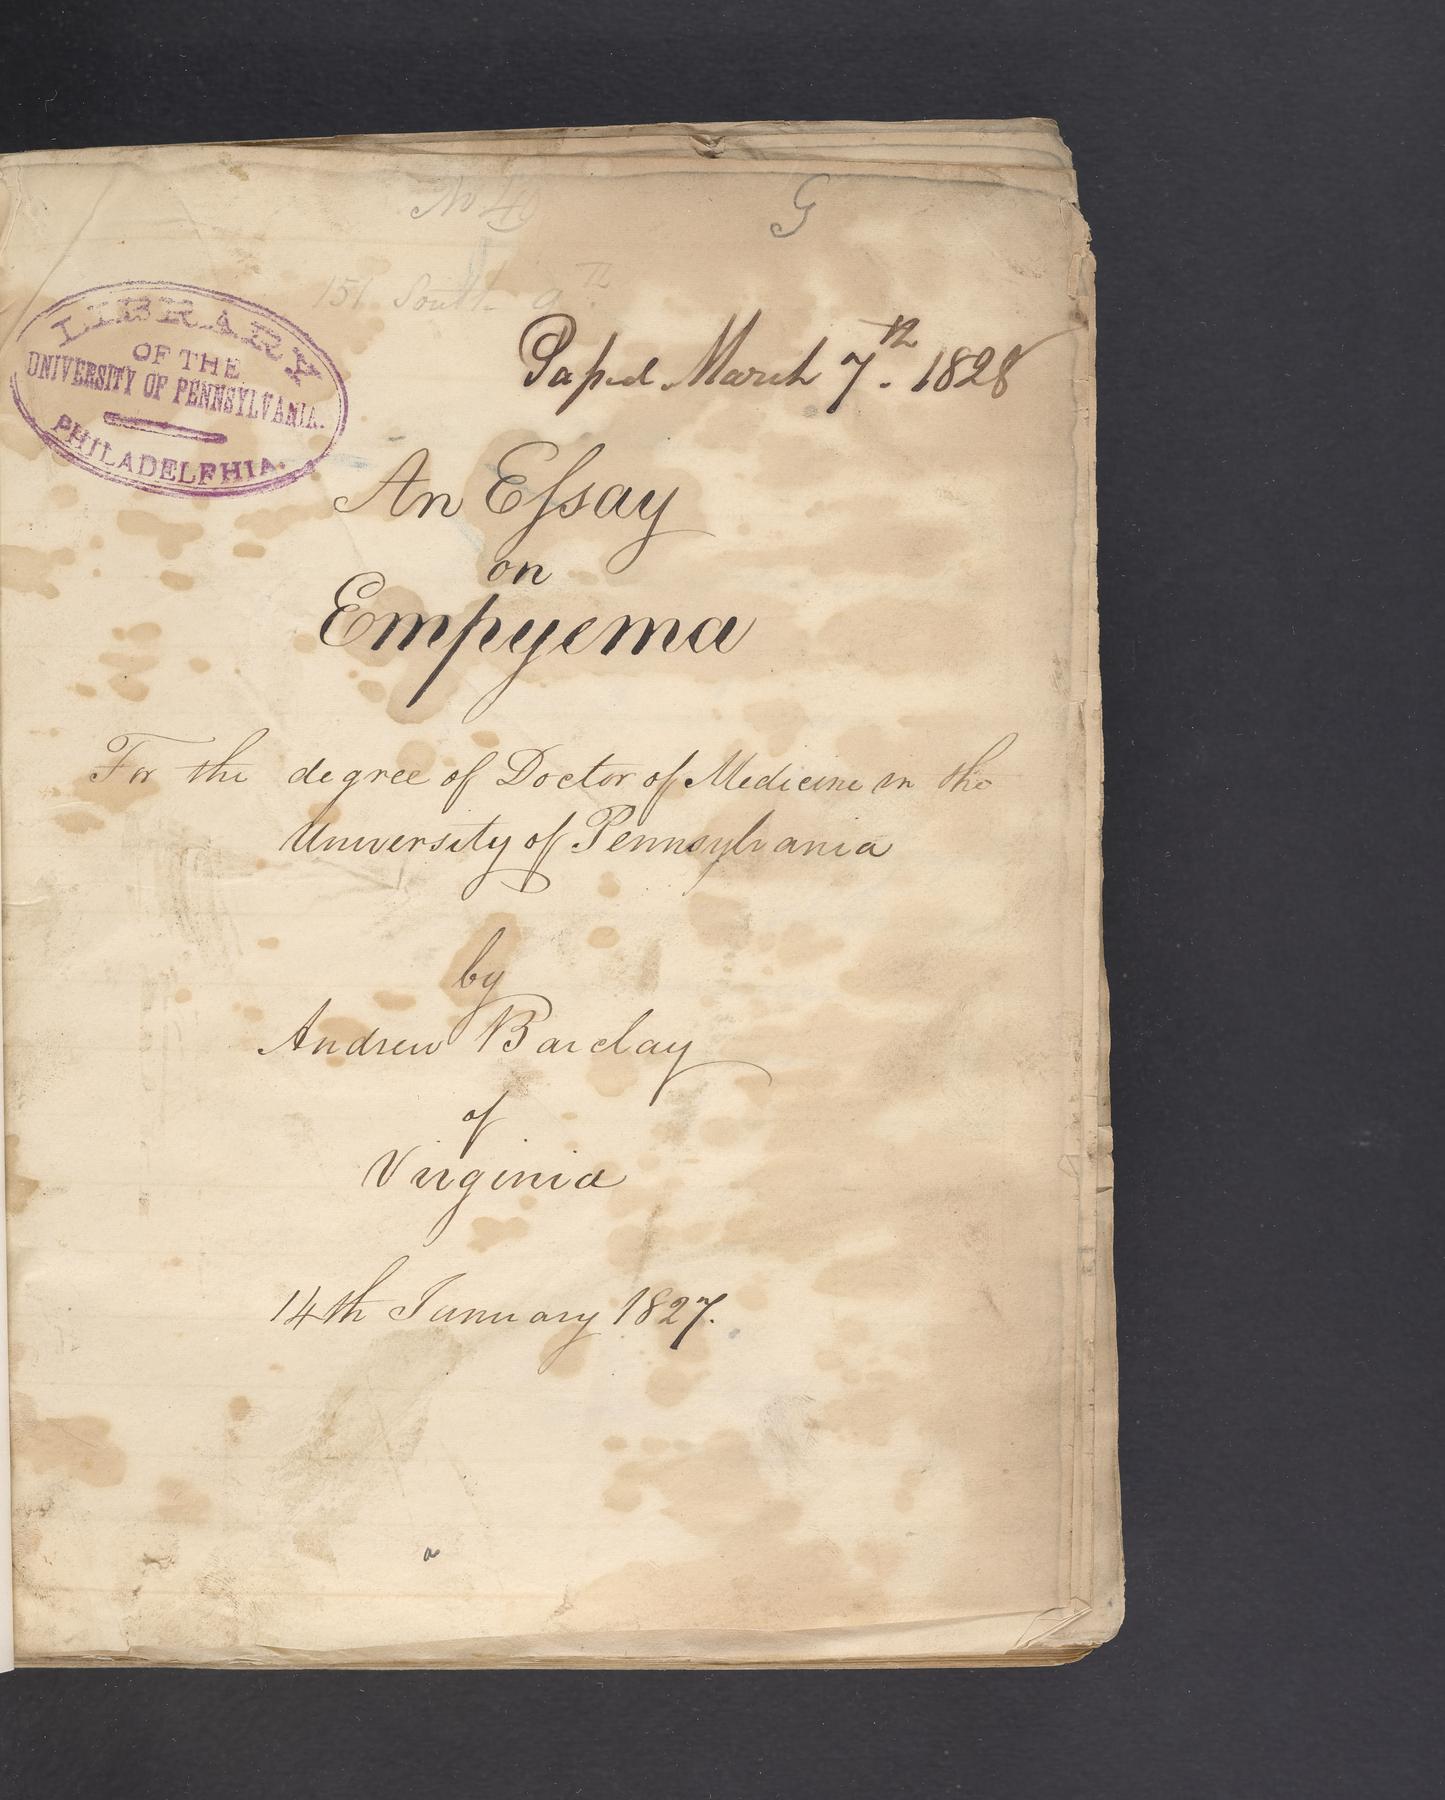 No 40
G
151 South 9th
LIBRARY
OF THE
UNIVERSITY OF PENNSYLVANIA.
PHILADELPHIA.
Paſsed March 7th. 1828
An Eſsay
on
Empyema
For the degree of Doctor of Medicine in the
University of Pennsylvania
by
Andrew Barclay
of
Virginia
14th January 1827.